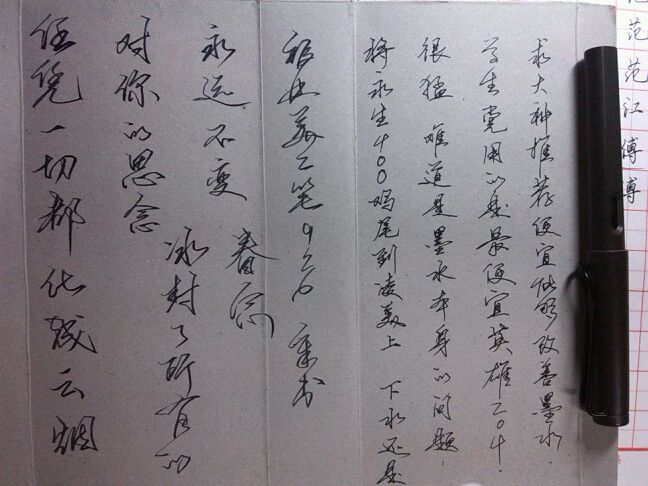 任凭一切都化成云烟
对你的思念
永远不变
冰封了所有的
眷恋
美工笔
将永生400 尾到凌美上 下水还是
很猛 难道是墨水本身的问题.
学生党用的是最便宜英雄204.
求大神推荐便宜能够改善墨水.
范范江傅博